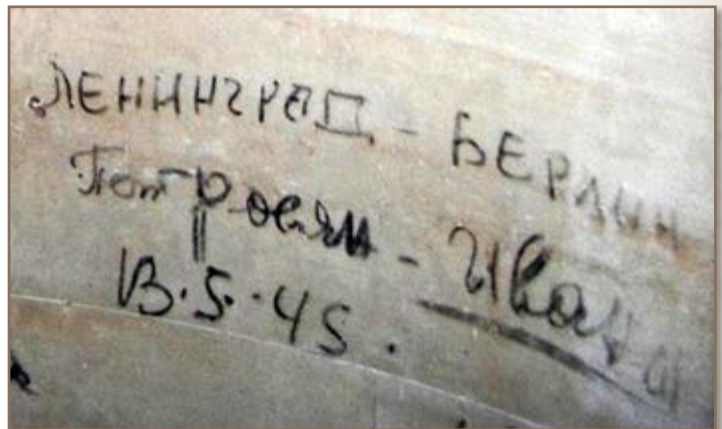 ЛЕНИНГРАД - БЕРЛИН
Петросян - Иван
13.5.45.